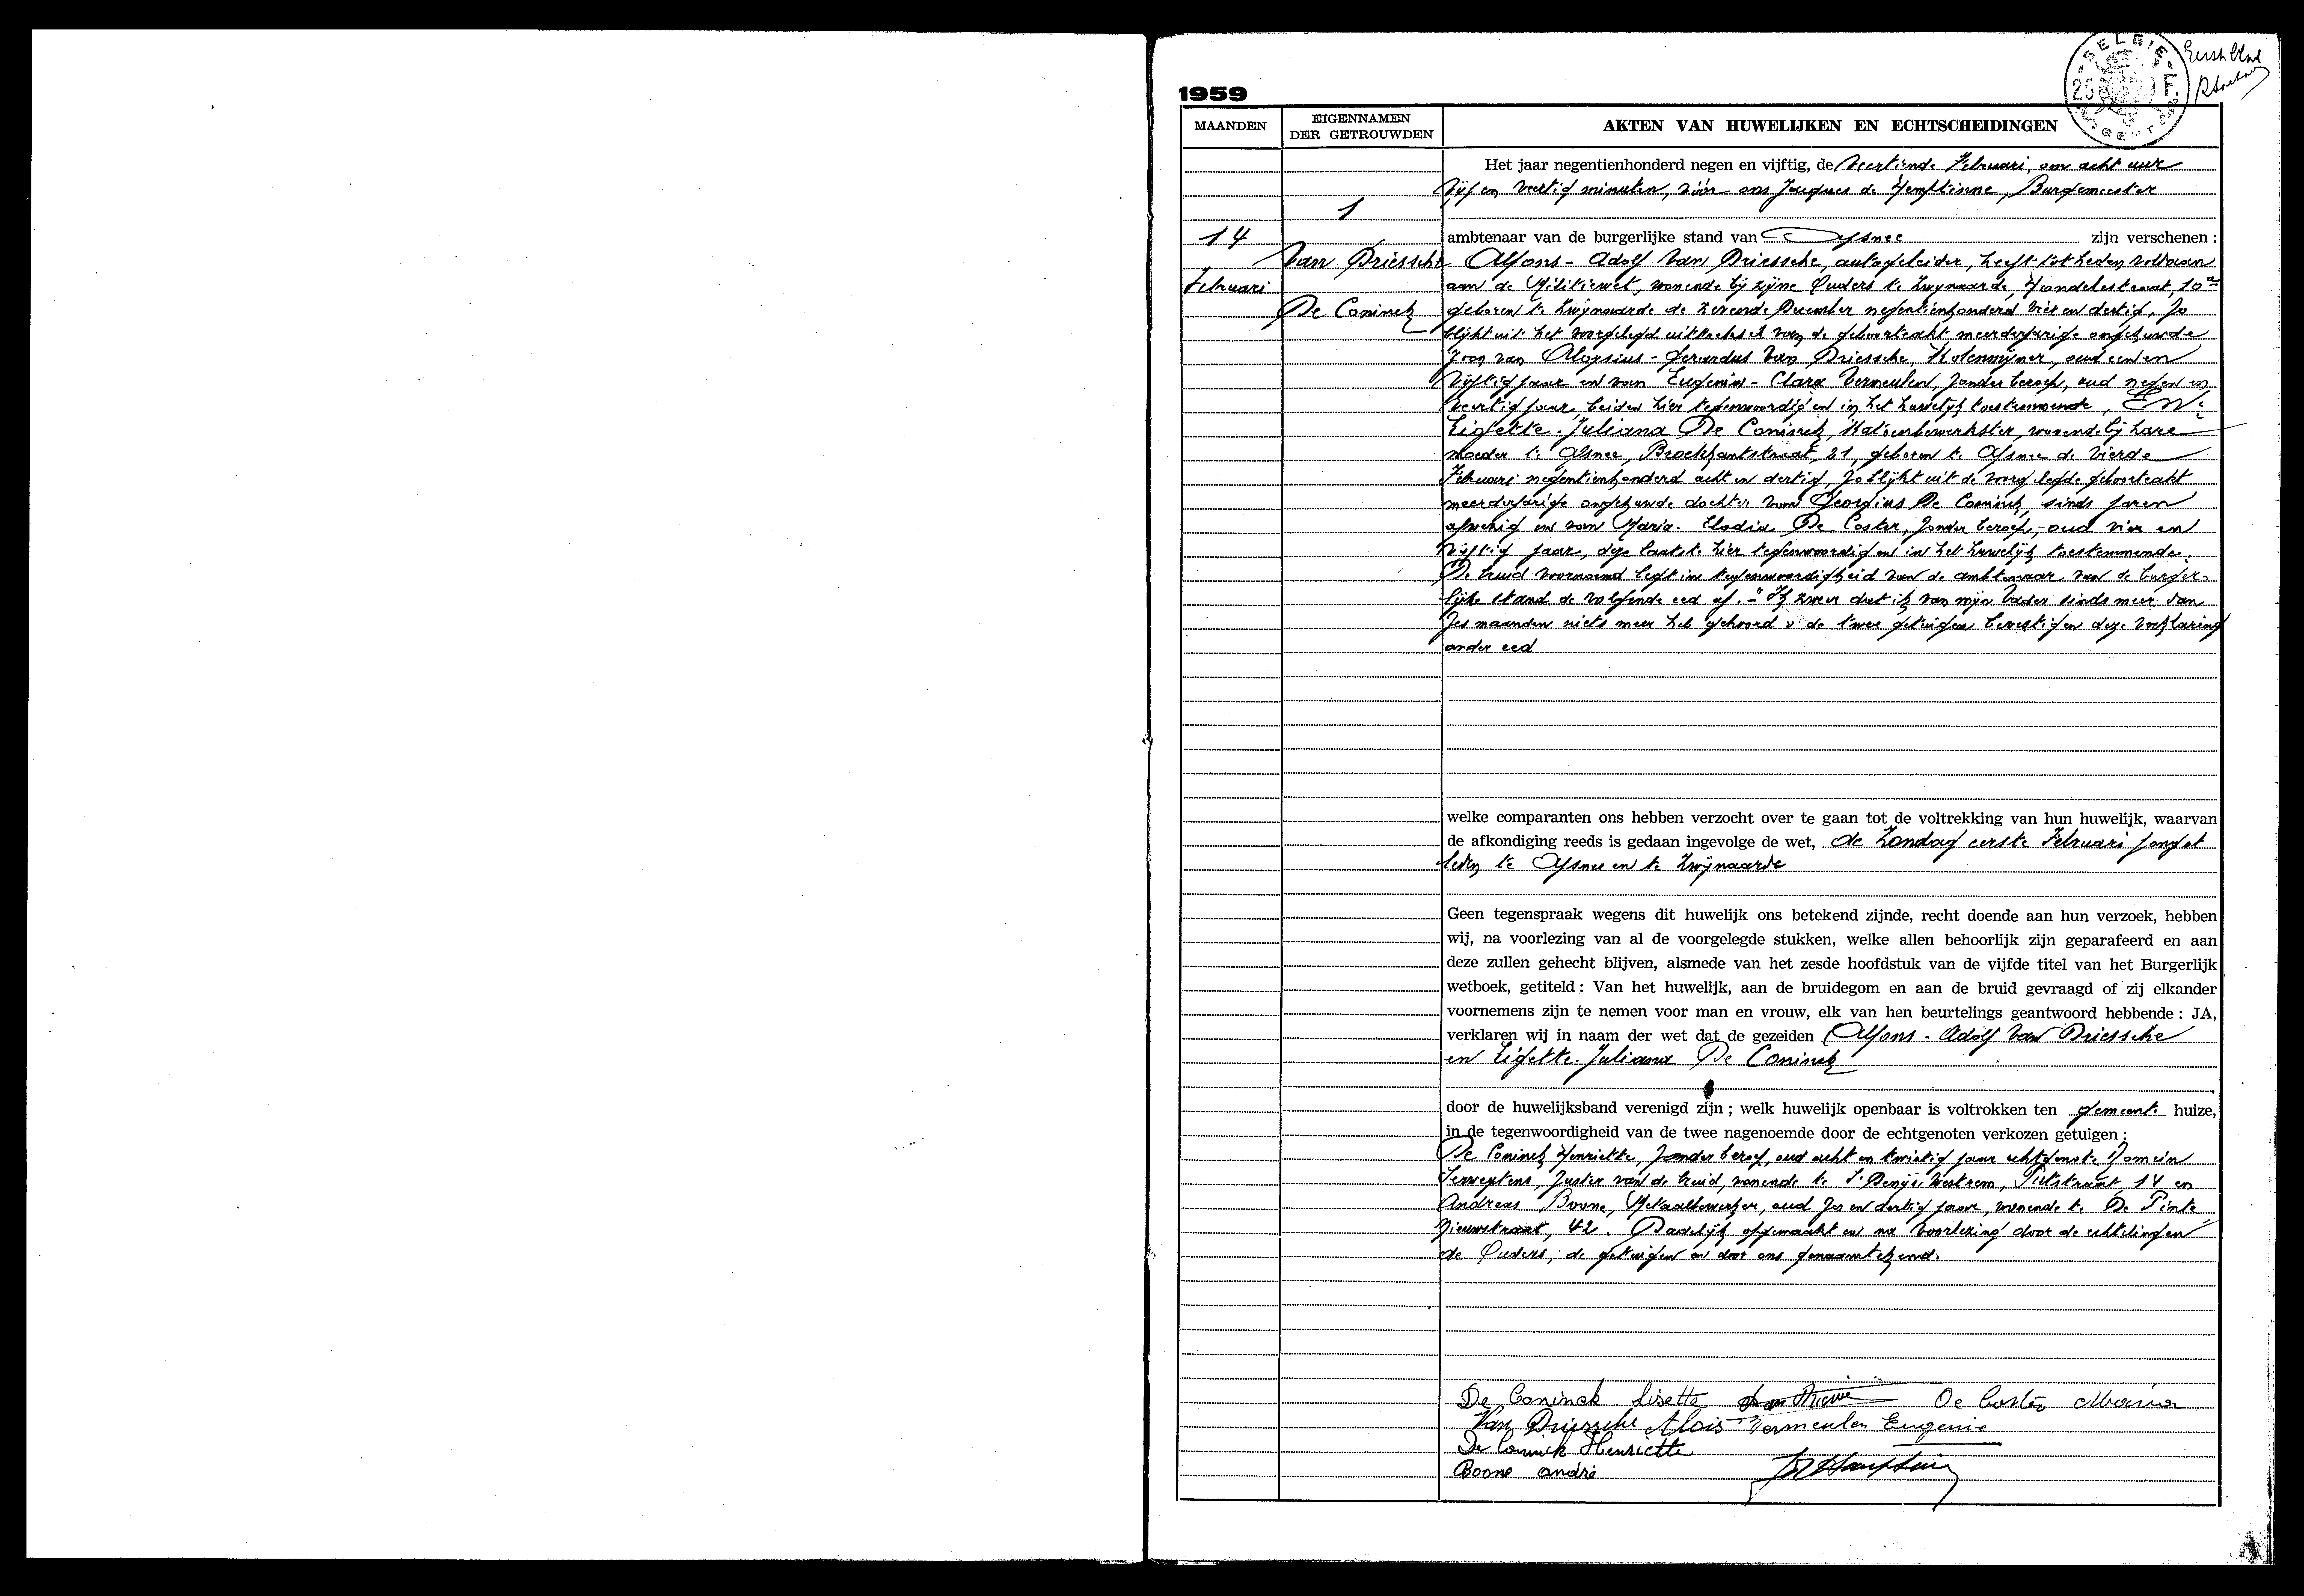 Eerste blad
BELGIE
25 F.
GENT
1959
MAANDEN
EIGENNAMEN
DER GETROUWDEN
AKTEN VAN HUWELIJKEN EN ECHTSCHEIDINGEN
1
14
Februari
Van Driessche
De Coninck
Het jaar negentienhonderd negen en vijftig, de veertiende Februari, om acht uur
vijf en veertig minuten, vóór ons Jacques de Hemptinne, Burgemeester
ambtenaar van de burgerlijke stand van Afsnee zijn verschenen :
Alfons - Adolf Van Driessche, autogeleider, heeft tot heden voldaan
aan de Militiewet, wonende bij zijne Ouders te Zwijnaarde, Hondelestraat, 10a
geboren te Zwijnaarde de zevende December negentienhonderd vier en dertig, zo
blijkt uit het voorgelegd uittreksel van de geboorteakt meerderjarige ongehuwde
zoon van Aloysius - Gerardus Van Driessche, Kolenmijner, oud een en
vijftig jaar en van Eugenia - Clara Vermeulen, zonder beroep, oud negen en
veertig jaar, beiden hier tegenwoordig en in het huwelijk toestemmende, En :
Lisette - Juliana De Coninck, Katoenbewerkster, wonende bij hare
moeder te Afsnee, Broekkantstraat, 21, geboren te Afsnee de vierde
Februari negentienhonderd acht en dertig, zo blijkt uit de voorgelegde geboorteakt
meerderjarige ongehuwde dochter van Georgius De Coninck, sinds jaren
afwezig en van Maria - Elodia De Coster, zonder beroep, oud vier en
vijftig jaar, deze laatste hier tegenwoordig en in het huwelijk toestemmende.
De bruid voornoemd legt in tegenwoordigheid van de ambtenaar van de burger-
lijke stand de volgende eed af. - "Ik zweer dat ik van mijn vader sinds meer dan
zes maanden niets meer heb gehoord" de twee getuigen bevestigen deze verklaring
onder eed
welke comparanten ons hebben verzocht over te gaan tot de voltrekking van hun huwelijk, waarvan
de afkondiging reeds is gedaan ingevolge de wet, de Zondag eerste Februari jongst
leden te Afsnee en te Zwijnaarde
Geen tegenspraak wegens dit huwelijk ons betekend zijnde, recht doende aan hun verzoek, hebben
wij, na voorlezing van al de voorgelegde stukken, welke allen behoorlijk zijn geparafeerd en aan
deze zullen gehecht blijven, alsmede van het zesde hoofdstuk van de vijfde titel van het Burgerlijk
wetboek, getiteld : Van het huwelijk, aan de bruidegom en aan de bruid gevraagd of zij elkander
voornemens zijn te nemen voor man en vrouw, elk van hen beurtelings geantwoord hebbende : JA,
verklaren wij in naam der wet dat de gezeiden Alfons - Adolf Van Driessche
en Lisette - Juliana De Coninck
door de huwelijksband verenigd zijn ; welk huwelijk openbaar is voltrokken ten gemeente huize,
in de tegenwoordigheid van de twee nagenoemde door de echtgenoten verkozen getuigen :
De Coninck Henriette, zonder beroep, oud acht en twintig jaar echtgenote Romein
zuster van de bruid, wonende te St Denijs Westrem, Putstraat, 14 en
Andreas Boone, Metaalbewerker, oud zes en dertig jaar, wonende te De Pinte
Nieuwstraat, 42. Dadelijk opgemaakt en na voorlezing door de echtelingen
de Ouders, de getuigen en door ons genaamtekend.
De Coninck Lisette De Coster Maria
Van Driessche Alois Vermeulen Eugenie
De Coninck Henriette
Boone andré